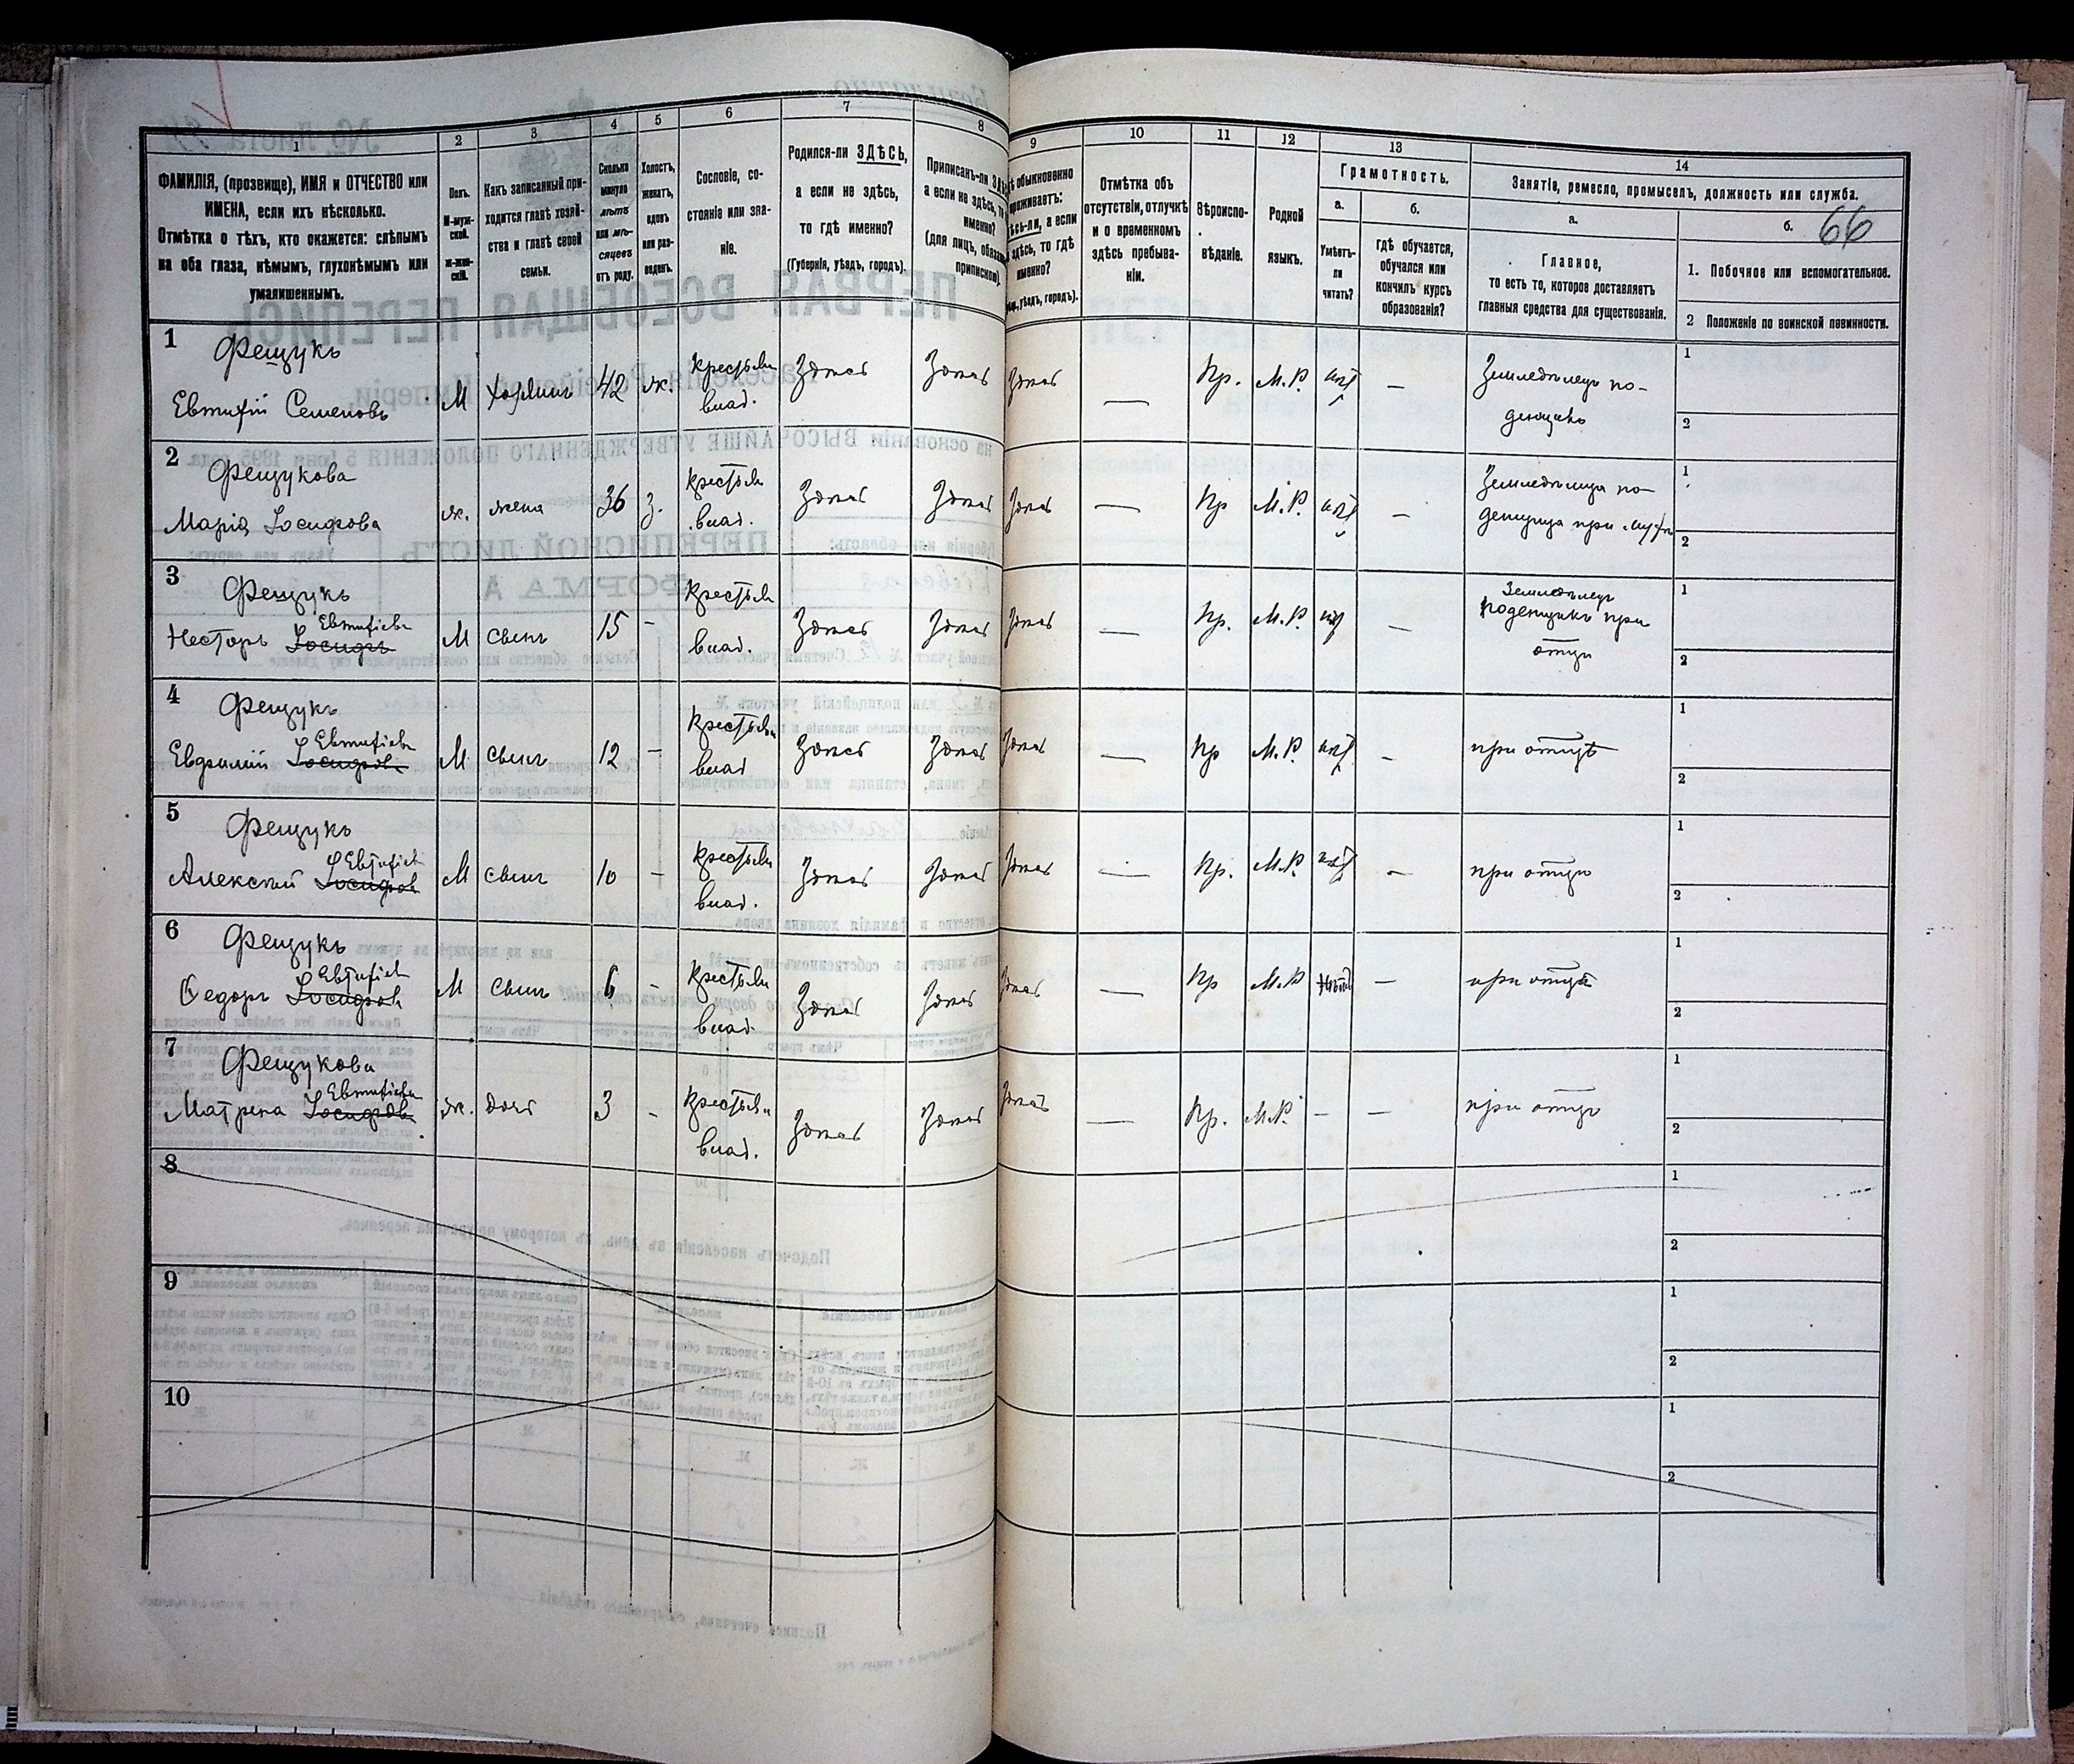 66
1
2
3
4
5
6
7
8
9
10
11
12
13
14
ФАМИЛІЯ, (прозвище), ИМЯ и ОТЧЕСТВО или
ИМЕНА, если ихъ нѣсколько.
Отмѣтка о тѣхъ, кто окажется: слѣпымъ
на оба глаза, нѣмымъ, глухонѣмымъ или
умалишеннымъ.
Полъ.
М-муж-
ской.
Ж-жен-
скій.
Какъ записанный при-
ходится главѣ хозяй-
ства и главѣ своей
семьи.
Сколько
минуло
лѣтъ
или мѣ-
сяцевъ
отъ роду.
Холостъ,
женатъ,
вдовъ
или раз-
веденъ.
Сословіе, со-
стояніе или зва-
ніе.
Родился-ли ЗДѢСЬ,
а если не здѣсь,
то гдѣ именно?
(Губернія, уѣздъ, городъ).
Приписанъ-ли
а если не здѣсь,
именно?
(для лицъ,
припискою).
обыкновенно
проживаетъ:
а если
здѣсь, то гдѣ
именно?
уѣздъ, городъ).
Отмѣтка объ
отсутствіи, отлучкѣ
и о временномъ
здѣсь пребыва-
ніи.
Вѣроиспо-
вѣданіе.
Родной
языкъ.
Грамотность.
а.
Умѣетъ-
ли
читать?
б.
гдѣ обучается,
обучался или
кончилъ курсъ
образованія?
Занятіе, ремесло, промыселъ, должность или служба.
а.
Главное,
то есть то, которое доставляетъ
главныя средства для существованія.
б.
1. Побочное или вспомогательное.
2 Положеніе по воинской повинности.
1
Фещукъ
Евтифій Семеновъ
М
42
ж.
крестьян
влад.
Здѣсь
Здѣсь
Здѣсь
—
Пр.
М.Р.
нѣт
—
Земледѣлецъ по-
денщикъ
1
2
2
Фещукова
Марія Іосифова
ж.
жена
36
з.
крестьян
влад.
Здѣсь
Здѣсь
Здѣсь
—
Пр
М.Р.
нѣт
—
Земледѣлица по-
денщица при мужѣ
1
2
3
Фещукъ
Евтифіевъ
Несторъ Іосифъ
М
сынъ
15
-
крестьян
влад.
Здѣсь
Здѣсь
Здѣсь
—
Пр.
М.Р.
нѣт
—
Земледѣлецъ
поденщикъ при
отцѣ
1
2
4
Фещукъ
Евтифіевъ
Евфимій Іосифовъ
М
сынъ
12
—
крестьян
влад
Здѣсь
Здѣсь
Здѣсь
—
Пр
М.Р.
нѣт
-
при отцѣ
1
2
5
Фещукъ
Евтифіев
Алексѣй Іосифов
М
сынъ
10
-
крестьян
влад.
Здѣсь
Здѣсь
Здѣсь
—
Пр.
М.Р.
нѣт
-
при отцѣ
1
2
6
Фещукъ
Евтифіев
Ѳедоръ Іосифов
М
сынъ
6
-
крестьян
влад.
Здѣсь
Здѣсь
Здѣсь
—
Пр
М.Р
Нѣтъ
—
при отцѣ
1
2
7
Фещукова
Евтифіева
Матрена Іосифов
ж.
дочь
3
-
крестьян
влад.
Здѣсь
Здѣсь
Здѣсь
—
Пр.
М.Р.
-
—
при отцѣ
1
2
8
1
2
9
1
2
10
1
2